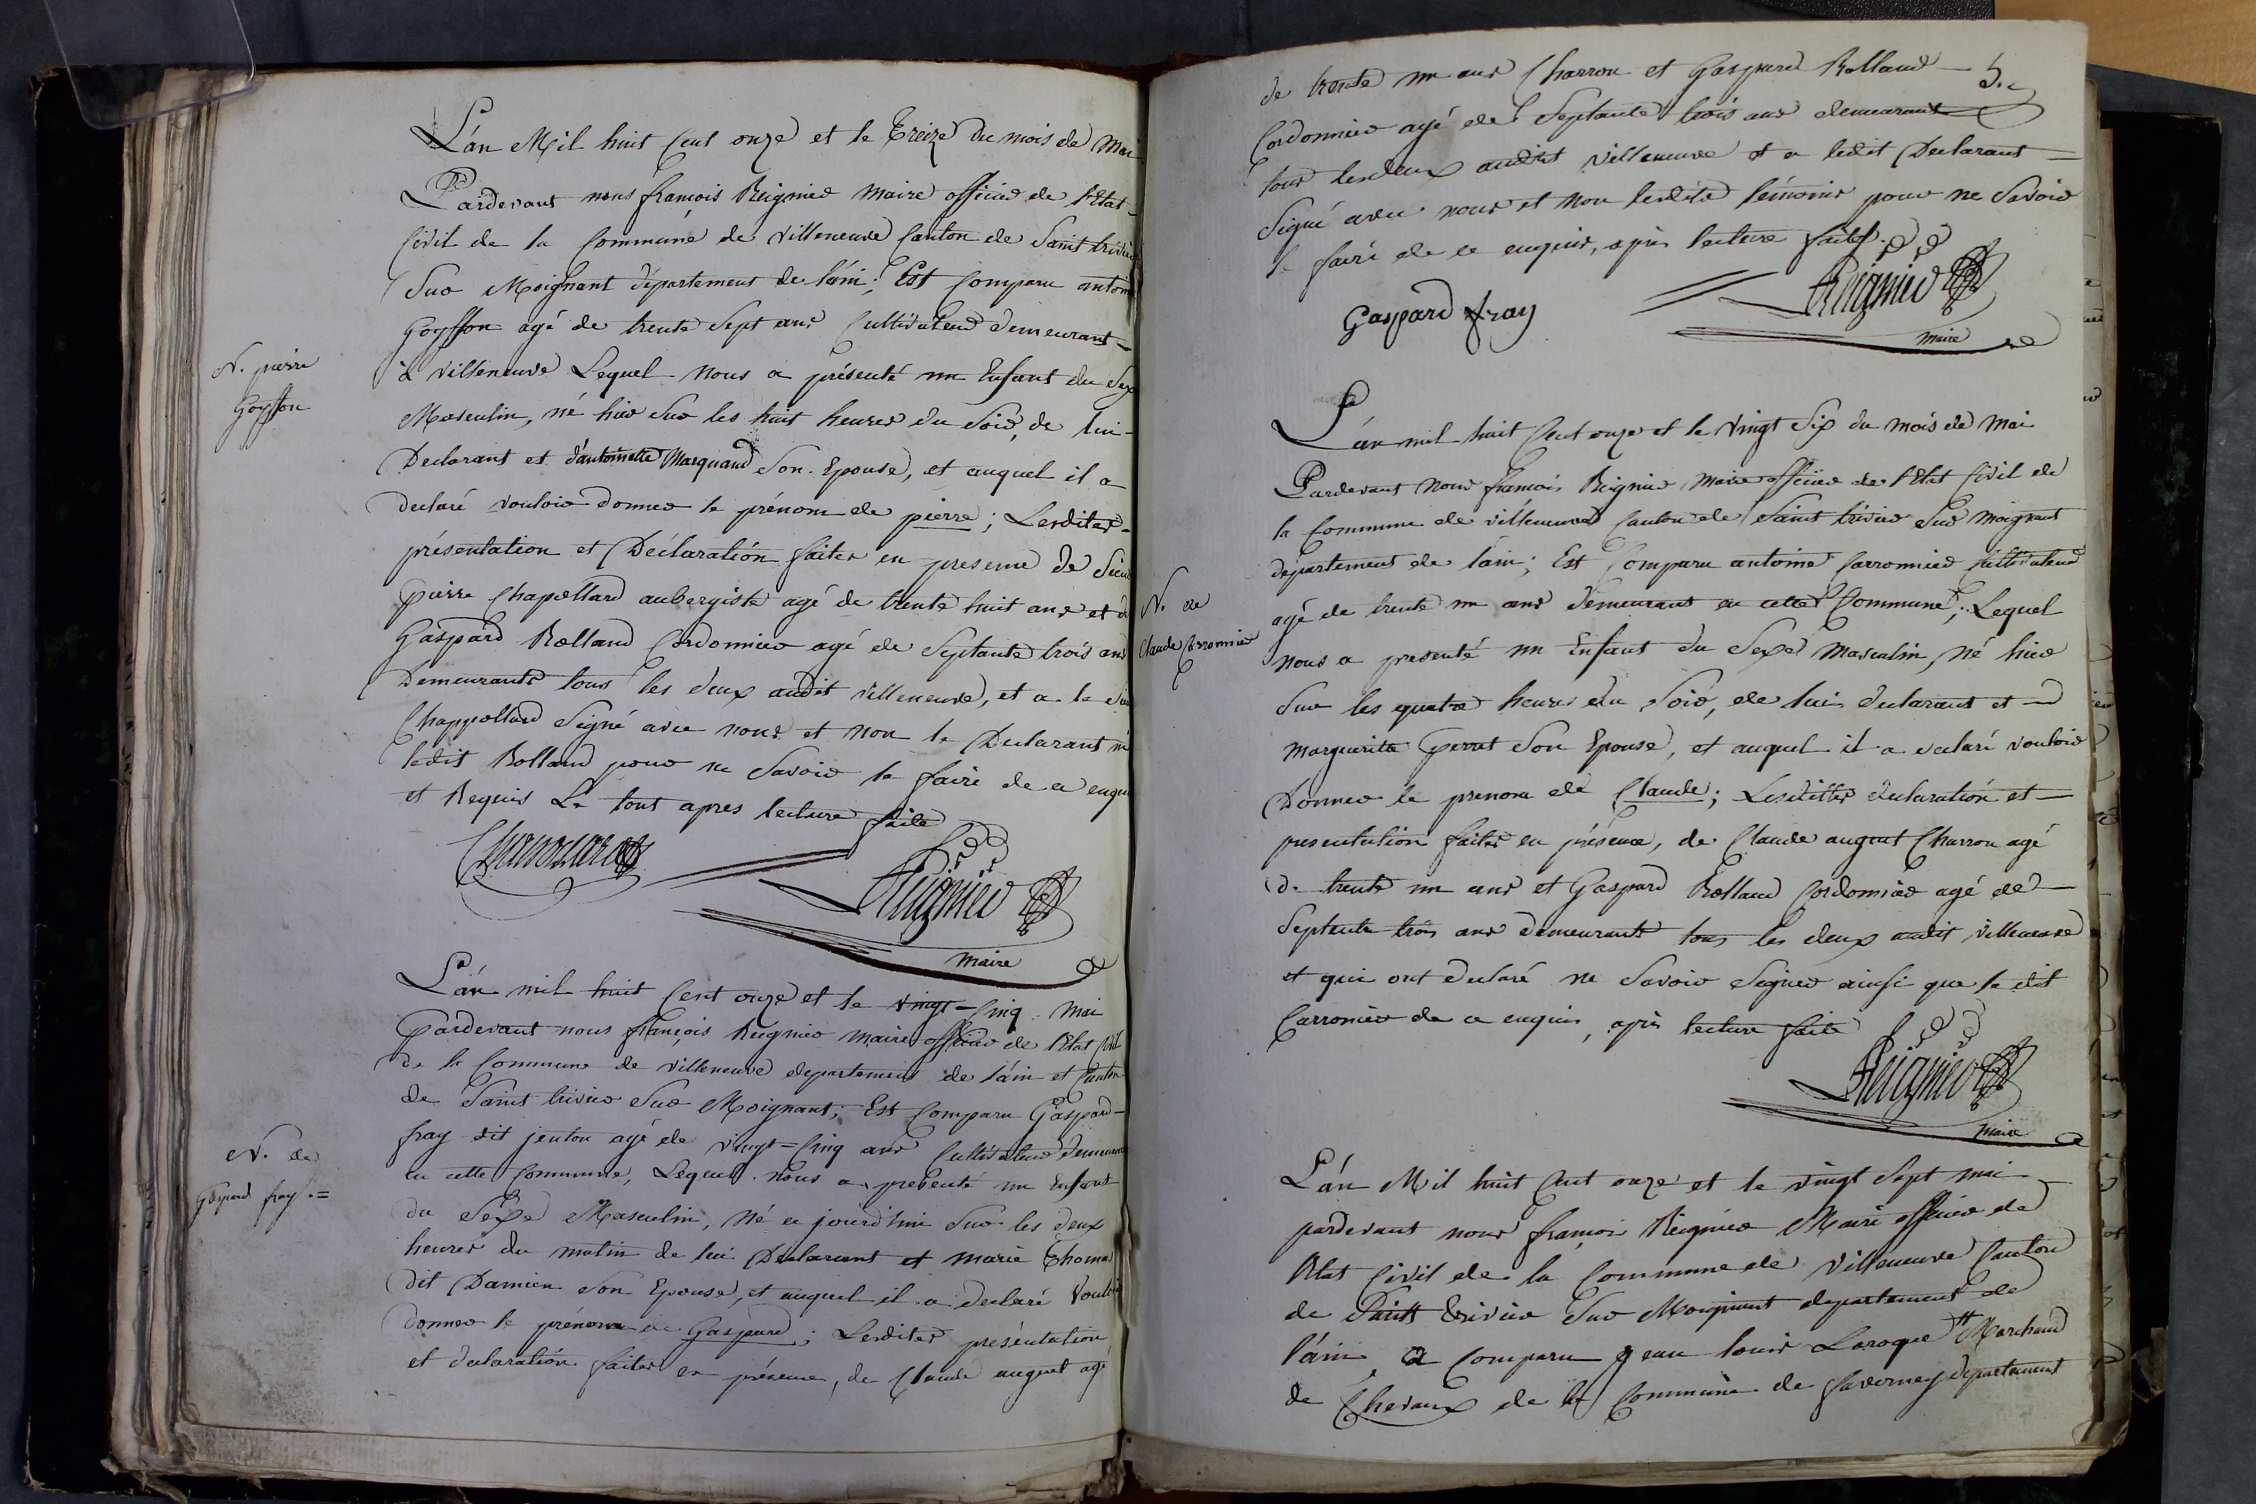 L'án Mil huit Cent onze et le Treize du mois de Mai
Pardevant nous françois Reignier Maire officier de l'Etat
Civil de la Commune de Villeneuve Canton de Saint trivier
Sur Moignant département de láin; Est Comparu antoine
Goyffon agé de trente Sept ans Cultivateur demeurant
N. pierre
Goyffon
à Villeneuve Lequel nous a présenté un Enfant du Sexe
Masculin, né hier Sur les huit heures du Soir, de lui
Declarant et d'antoinette Marquand Son Epouse, et auquel il a
declaré vouloir donner le prénom de pierre; Lesdites
présentation et Déclaratión faites en presence de Sieur
pierre Chapollard aubergiste agé de trente huit ans et de
Gaspard Rolland Cordonnier agé de Septante trois ans
Demeurants tous les deux audit Villeneuve, et a le dit
Chappollard Signé avec nous et non le Declarant ni
ledit Rolland pour ne Savoir le faire de ce enquis
et Requis Le tout apres lecture faite
Reignier
Maire
L'án mil huit Cent onze et le vingt=Cinq Mai
pardevant nous françois Reignier Maire officier de l'Etat Civil
de la Commune de Villeneuve departement de láin et Canton
de Saint trivier Sur Moignant; Est Comparu Gaspard
fray dit jenton agé de vingt=Cinq ans Cultivateur demeurant
N. de
Gaspard fray =
en cette Commune, Lequel nous a presenté un Enfant
du Séxe Masculin, Né ce jourd'hui Sur les deux
heures du matin de lui Declarant et Marie Thomas
dit Damien Son Epouse, et auquel il a declaré Vouloir
donner le prénom de Gaspard; Lesdites présentation
et declaratión faites en présence, de Claude augent agé
de trente un ans Charron et Gaspard Rolland
5.
Cordonnier agé de Septante trois ans demeurant
tous lesdeux audit Villeneuve et a ledit Declarant
Signé avec nous et Non lesdits témoins pour ne Savoir
le faire de ce enquis, après lecture faite.
Gaspard fray
Reignier
maire
L'án mil huit Cent onze et le Vingt Six du mois de Mai
Pardevant Nous francois Reignier Maire officier de l'Etat Civil de
la Commune de villeneuve Canton de Saint trivier Sur Moignant
département de láin; Est Comparu antoine Carronnier Cultivateur
N. de
Claude Carronnier
agé de trente un ans demeurant en cette Commune; Lequel
nous a presenté un Enfant du Sexe Masculin, Né hier
Sur les quatre heures du Soir, de lui declarant et
Marguerite perrat Son Epouse, et auquel il a declaré vouloir
Donner le prenom de Claude; Lesdittes declaratión et
presentation faites en présence, de Claude augent Charron agé
de trente un ans et Gaspard Rolland Cordonnier agé de
Septante trois ans demeurants tous les deux audit Villeneuve
et qui ont declaré ne Savoir Signer ainsi que le dit
Carronier de ce enquis, après lecture faite
Reignier
Maire
L'án Mil huit Cent onze et le vingt Sept mai
pardevant nous francois Reignier Maire officier de
l'Etat Civil de la Commune de Villeneuve Canton
de Saint Trivier Sur Moignant departement de
l'áin, a Comparu Jean louis Laroque Marchand
de Chevaux de la Commune de faverney departement